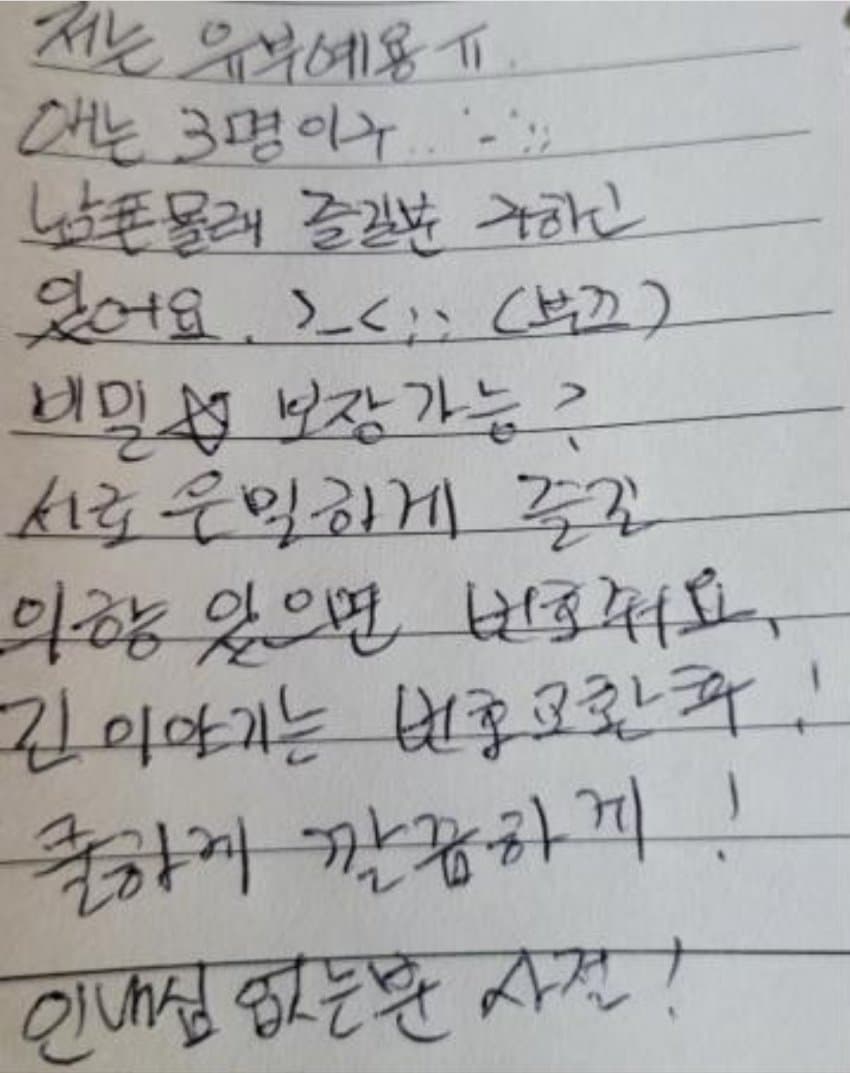 저는 유부예용 ㅠ.
애는 3명이구..-;;
남푠몰래 즐길분 구하긴
있어요. >_<;; (부끄)
비밀☆ 보장가능?
서로 은밀하게 즐길
의향 있으면 번호줘요,
긴 이야기는 번호교환 후!
쿨하게 깔끔하게!
인내심 없는분 사절!